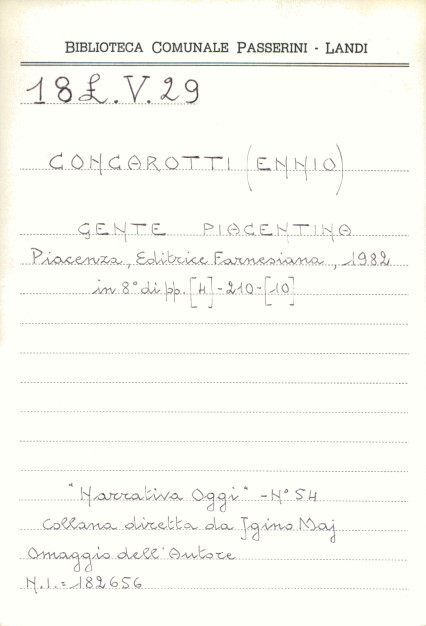 BIBLIOTECA COMUNALE PASSERINI - LANDI
18£.V.29
CONCAROTTI (ENNIO)
GENTE PIACENTINA
Piacenza, Editrice Farnesiana, 1982
in 8° di pp. [4]-210-[10]
"Narrativa Oggi" - N° 54
Collana diretta da Igino Maj
Omaggio dell'Autore
N.I.= 182656